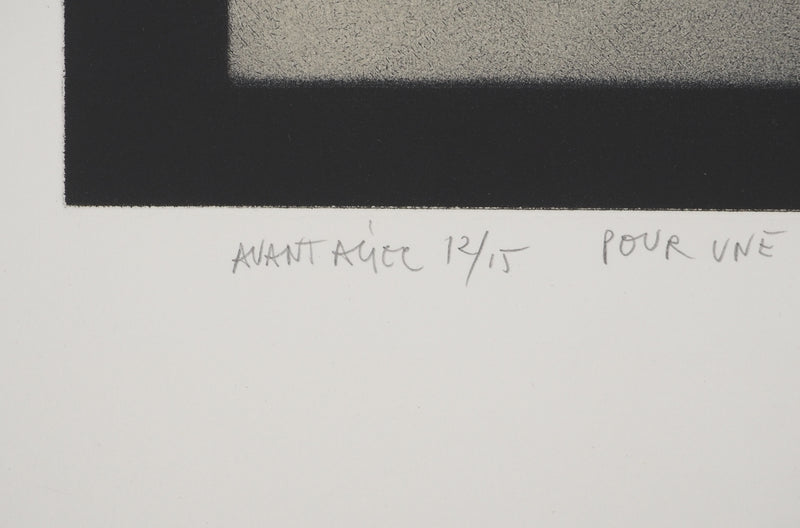 AVANT ACIER 12/15 POUR UNE